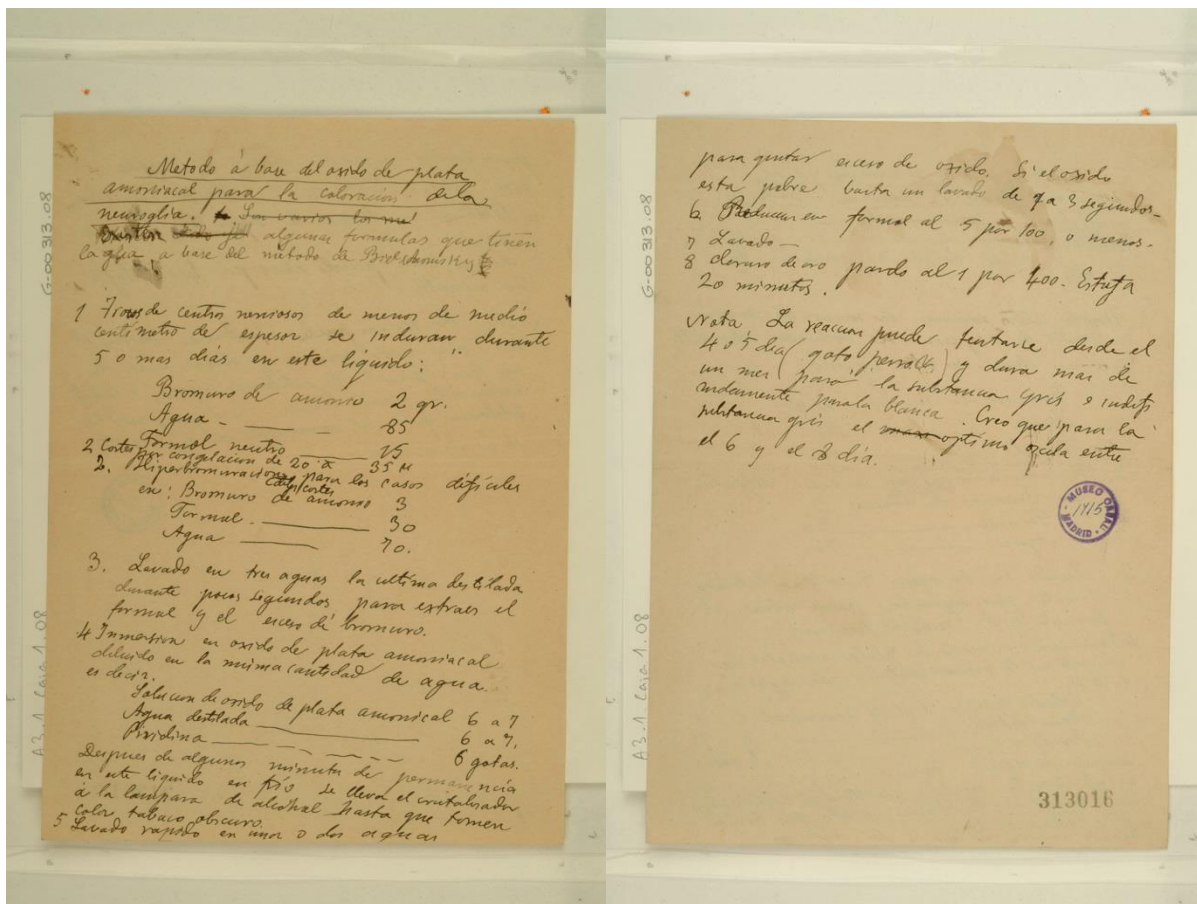 Metodo á base del oxido de plata
amoniacal para la coloracion dela
neuroglia. Son varios los
Existen algunas formulas que tiñen
la glia, a base del método de Bielschowsky
1 Trozos de centros nerviosos de menos de medio
centimetro de espesor se induran durante
5 o mas dias en este liquido:
Bromuro de amonio 2 gr.
Agua - 85
Formol neutro 15
2 Cortes por congelacion de 20 a 35 µ
2. Hiperbromuracion para los casos dificiles
en: Bromuro de amonio 3
Formol. 30
Agua 70.
3. Lavado en tres aguas la ultima destilada
durante pocos segundos para extraer el
formol y el exceso de bromuro.
4 Inmersion en oxido de plata amoniacal
diluido en la misma cantidad de agua.
es decir.
Solucion de oxido de plata amonical 6 a 7
Agua destilada 6 a 7.
Piridina 6 gotas.
Despues de algunos minutos de permanencia
en este liquido en frio se lleva el cristalizador
á la lampara de alcohol hasta que tomen
color tabaco obscuro.
5 Lavado rapido en una o dos aguas
G-00313.08
A3.1 Caja 1.08
para quitar exceso de oxido. Si el oxido
esta pobre basta un lavado de 2 a 3 segundos-
6 Reduccion en formol al 5 por 100, o menos.
7 Lavado -
8 cloruro de oro pardo al 1 por 400. Estufa
20 minutos.
Nota, La reaccion puede tentarse desde el
4 o 5 dia (gato perro) y dura mas de
un mes para la substancia gris e indefi
nidamente para la blanca. Creo que para la
substancia gris el optimo oscila entre
el 6 y el 8 dia.
MUSEO CAJAL
1415
MADRID
313016
G-00313.08
A3.1 Caja 1.08